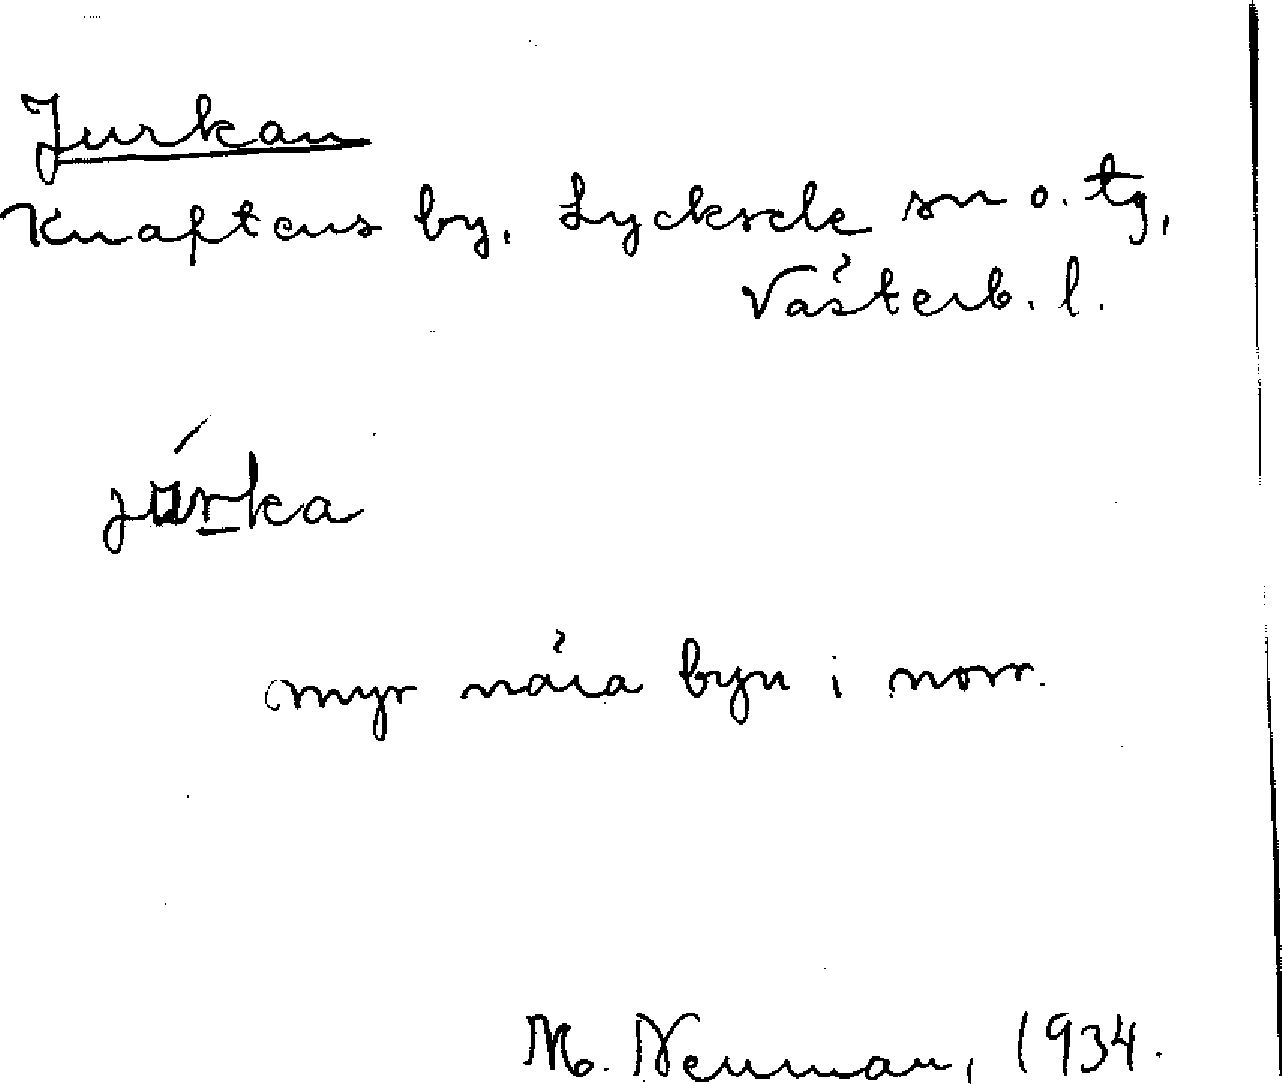 Jurkan
Knaftens by, Lycksele sn o. tg,
Västerb. l.
júrka
myr nära byn i norr.
M. Neuman, 1934.